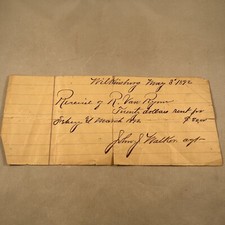 Wilkinsburg May 3rd 1892
Received of R. Van Ryner
Twenty dollars rent for
March 1892 $20.00
John J. Walker agt